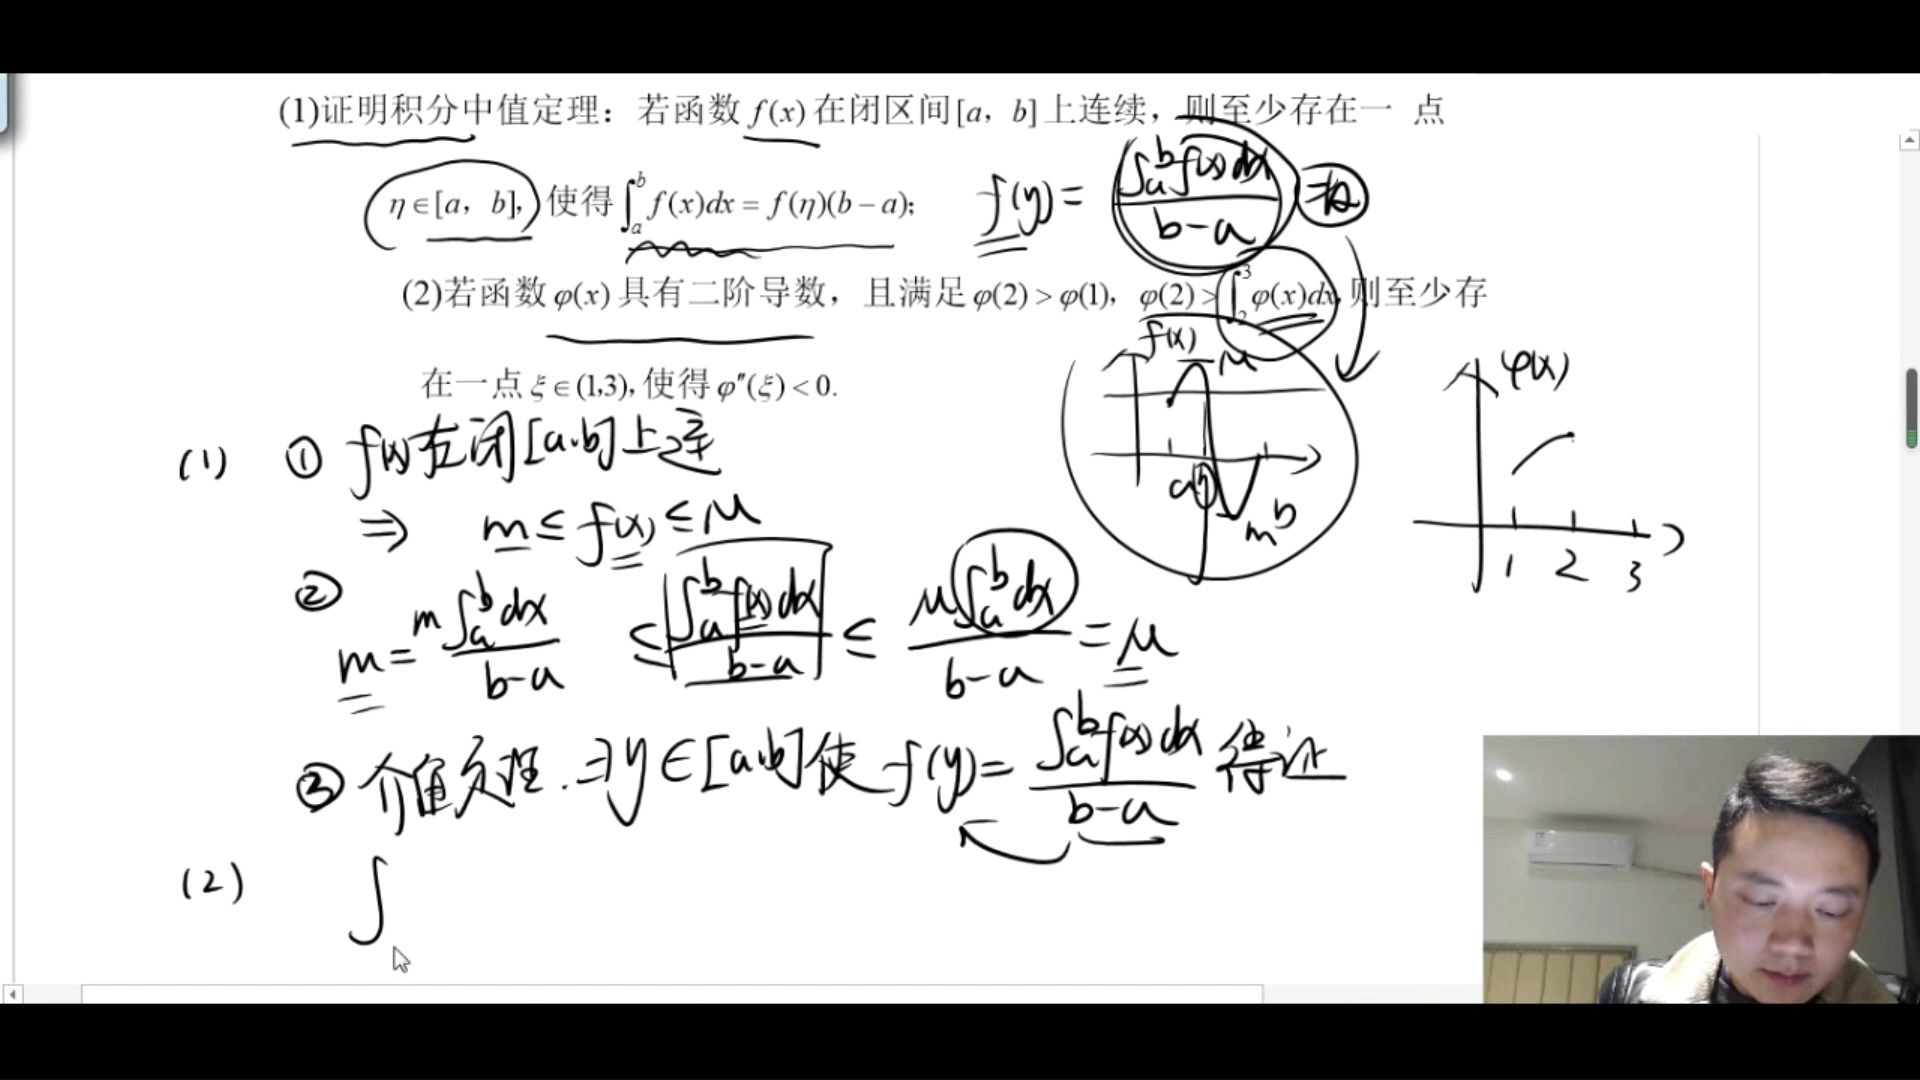 (1)证明积分中值定理：若函数 f(x) 在闭区间[a，b]上连续，则至少存在一 点
η∈[a，b]，使得∫_a^b f(x)dx = f(η)(b−a);
f(y) = ∫_a^b f(x)dx / (b−a)
(2)若函数 φ(x) 具有二阶导数，且满足 φ(2) > φ(1)，φ(2) > ∫_2^3 φ(x)dx, 则至少存
在一点 ξ∈(1,3), 使得 φ″(ξ) < 0.
f(x) M
a b
m
φ(x)
1 2 3
(1) ① f(x)在闭[a.b]上连
⇒ m ≤ f(x) ≤ M
② m = m∫_a^b dx / (b−a) ≤ ∫_a^b f(x)dx / (b−a) ≤ M∫_a^b dx / (b−a) = M
③ 介值定理. ∃y∈[a.b]使 f(y) = ∫_a^b f(x)dx / (b−a) 得证
(2) ∫